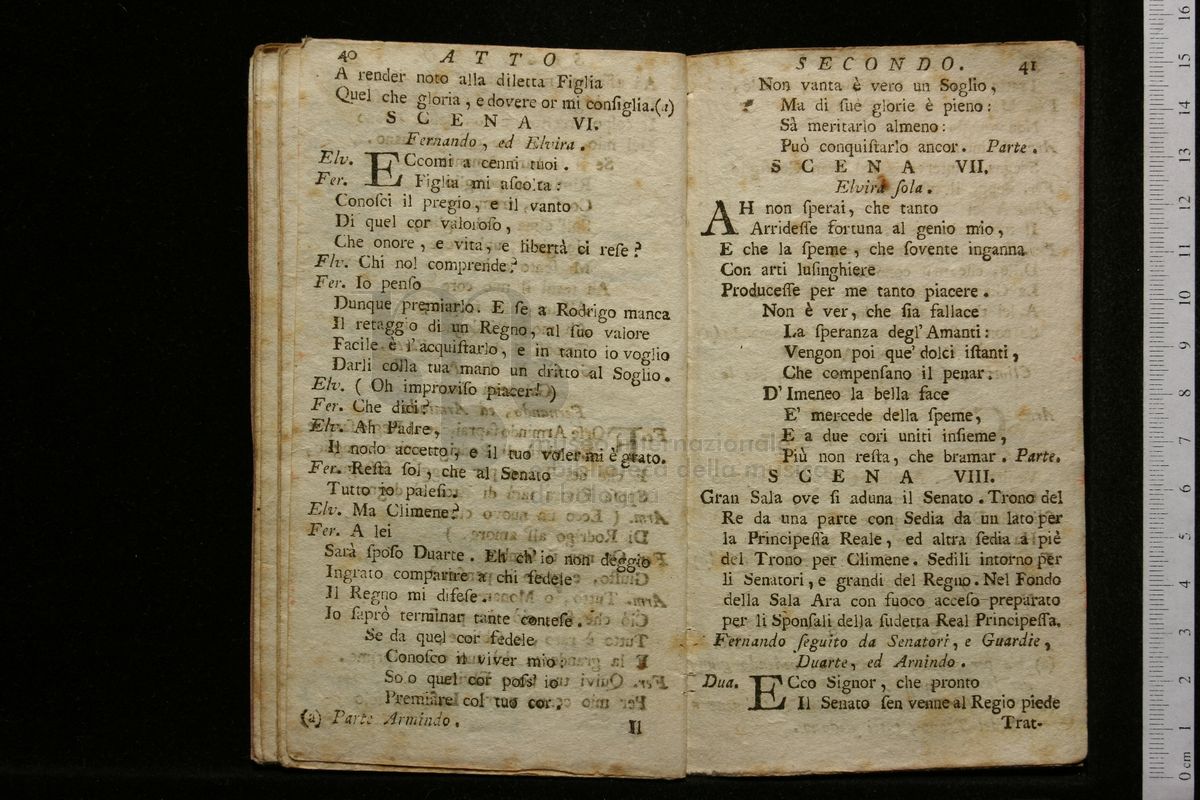 40 ATTO
A render noto alla diletta Figlia
Quel che gloria, e dovere or mi consiglia.(a)
SCENA VI.
Fernando, ed Elvira.
Elv. ECcomi a cenni tuoi.
Fer. Figlia mi ascolta:
Conosci il pregio, e il vanto
Di quel cor valoroso,
Che onore, e vita, e libertà ci rese?
Elv. Chi nol comprende?
Fer. Io penso
Dunque premiarlo. E se a Rodrigo manca
Il retaggio di un Regno, al suo valore
Facile è l'acquistarlo, e in tanto io voglio
Darli colla tua mano un dritto al Soglio.
Elv. ( Oh improviso piacer! )
Fer. Che dici?
Elv. Ah Padre,
Il nodo accetto, e il tuo voler mi è grato.
Fer. Resta sol, che al Senato
Tutto io palesi.
Elv. Ma Climene?
Fer. A lei
Sarà sposo Duarte. Eh ch'io non deggio
Ingrato compartire a chi fedele
Il Regno mi difese.
Io saprò terminar tante contese.
Se da quel cor fedele
Conosco il viver mio:
So o quel cor poss' io
Premiare col tuo cor.
(a) Parte Armindo.
Il
SECONDO. 41
Non vanta è vero un Soglio,
Ma di sue glorie è pieno:
Sà meritarlo almeno:
Può conquistarlo ancor. Parte.
SCENA VII.
Elvira sola.
AH non sperai, che tanto
Arridesse fortuna al genio mio,
E che la speme, che sovente inganna
Con arti lusinghiere
Producesse per me tanto piacere.
Non è ver, che sia fallace
La speranza degl' Amanti:
Vengon poi que' dolci istanti,
Che compensano il penar.
D' Imeneo la bella face
E' mercede della speme,
E a due cori uniti insieme,
Più non resta, che bramar. Parte.
SCENA VIII.
Gran Sala ove si aduna il Senato. Trono del
Re da una parte con Sedia da un lato per
la Principessa Reale, ed altra sedia a piè
del Trono per Climene. Sedili intorno per
li Senatori, e grandi del Regno. Nel Fondo
della Sala Ara con fuoco acceso preparato
per li Sponsali della sudetta Real Principessa.
Fernando seguito da Senatori, e Guardie,
Duarte, ed Arnindo.
Dua. ECco Signor, che pronto
Il Senato sen venne al Regio piede
Trat-
museo internazionale
e biblioteca della musica
di bologna